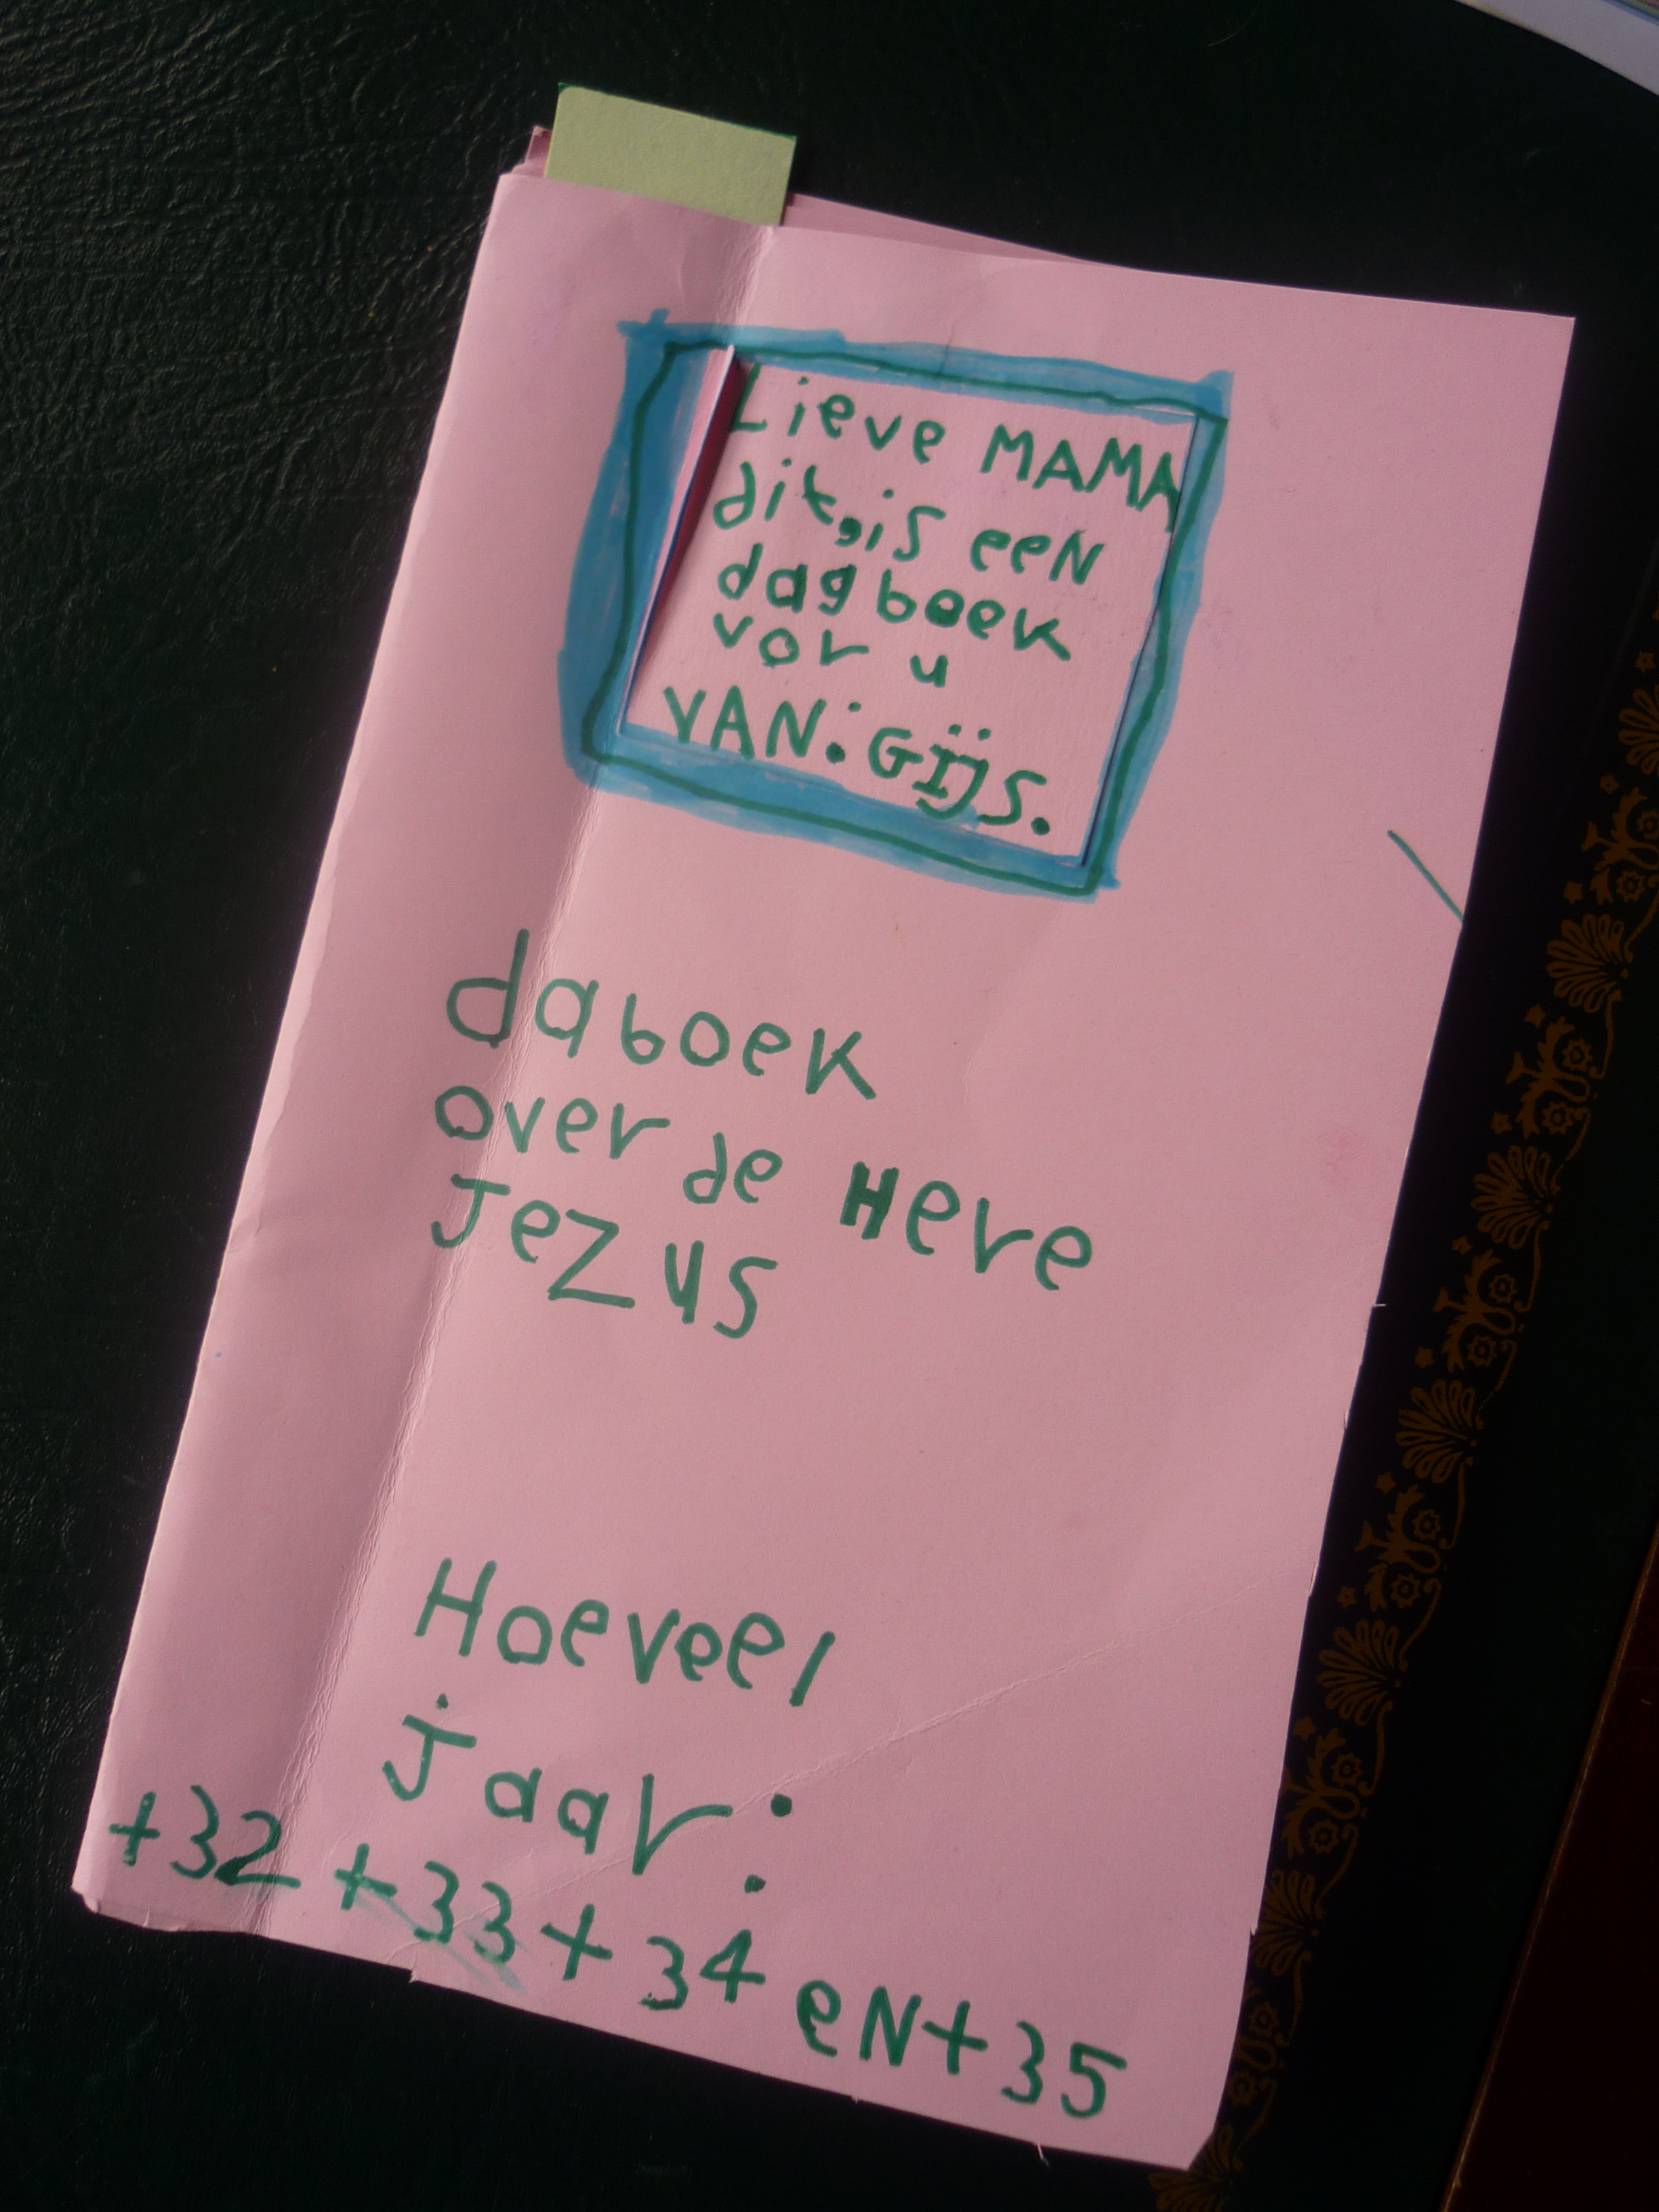 Lieve MAMA
dit, is een
dagboek
vor u
VAN: GIJS.
daboek
over de Here
Jezus
Hoeveel
jaar:
+32 +33 + 34 eN + 35